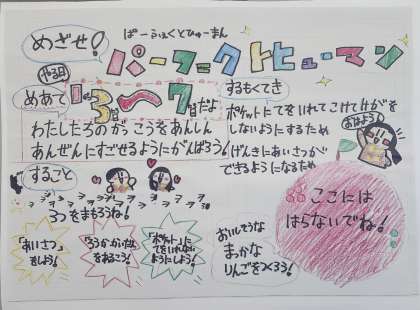 めざせ!
ぱーふぇくとひゅーまん
パーフェクトヒューマン
やる日
1/3〜7日だよ
めあて
わたしたちのがっこうをあんしん
あんぜんにすごせるようにがんばろう!
するもくてき
ポケットにてをいれてこけてけがを
しないようにするため
げんきにあいさつが
できるようになるため
おはよう!
すること
3つをまもろうね!
「あいさつ」
をしよう!
「ろうかかいだん」
をあるこう!
「ポケット」に
てをいれない
ようにしよう!
おいしそうな
まっかな
りんごをつくろう!
ここには
はらないでね!